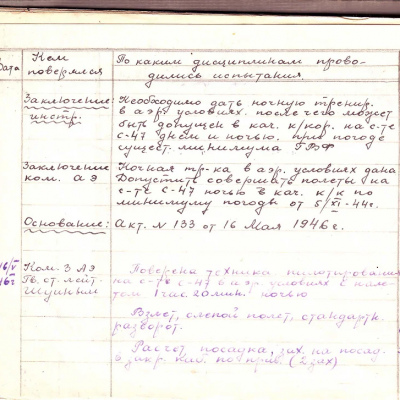 Дата
Кем поверялся
По каким дисциплинам прово-
дились испытания
Заключение инстр.:
Необходимо дать ночную тренир.
в аэр. условиях. после чего может
быть допущен в кач. к/кор. на с-те
С-47 днем и ночью. при погоде
сущест. минимума ГВФ
Заключение ком. АЭ
Ночная тр-ка в аэр. условиях дана
Допустить совершать полеты на
с-те С-47 ночью в кач. к/к по
минимуму погоды от 5/XI-44г.
Основание:
Акт. N 133 от 16 Мая 1946г.
16/V 46г
Ком. 3 АЭ
Гв. ст. лейт.
Поверена техника пилотирования
на с-те С-47 в аэр. условиях с нале-
том 1 час. 20 мин. ночью
Взлет, слепой полет, стандартн.
разворот.
Расчет посадка, зах. на посад.
в закр. каб. по прив. (2 зах)